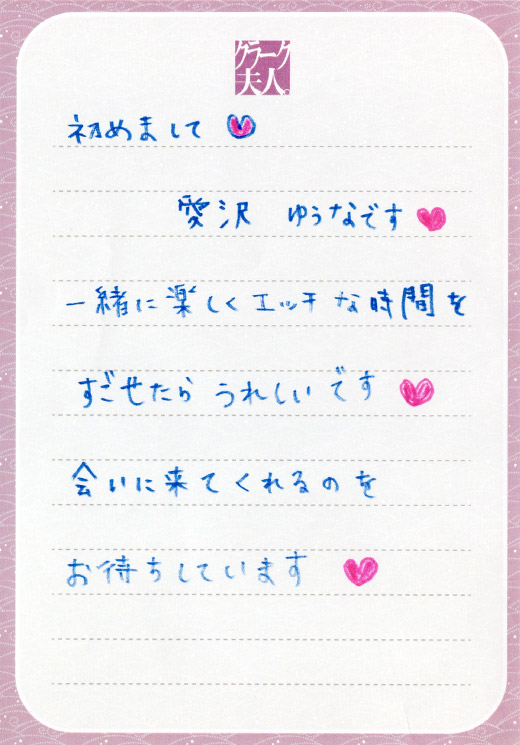 クラーク
夫人。
初めまして
愛沢 ゆうなです
一緒に楽しくエッチな時間を
すごせたら うれしいです
会いに来てくれるのを
お待ちしています